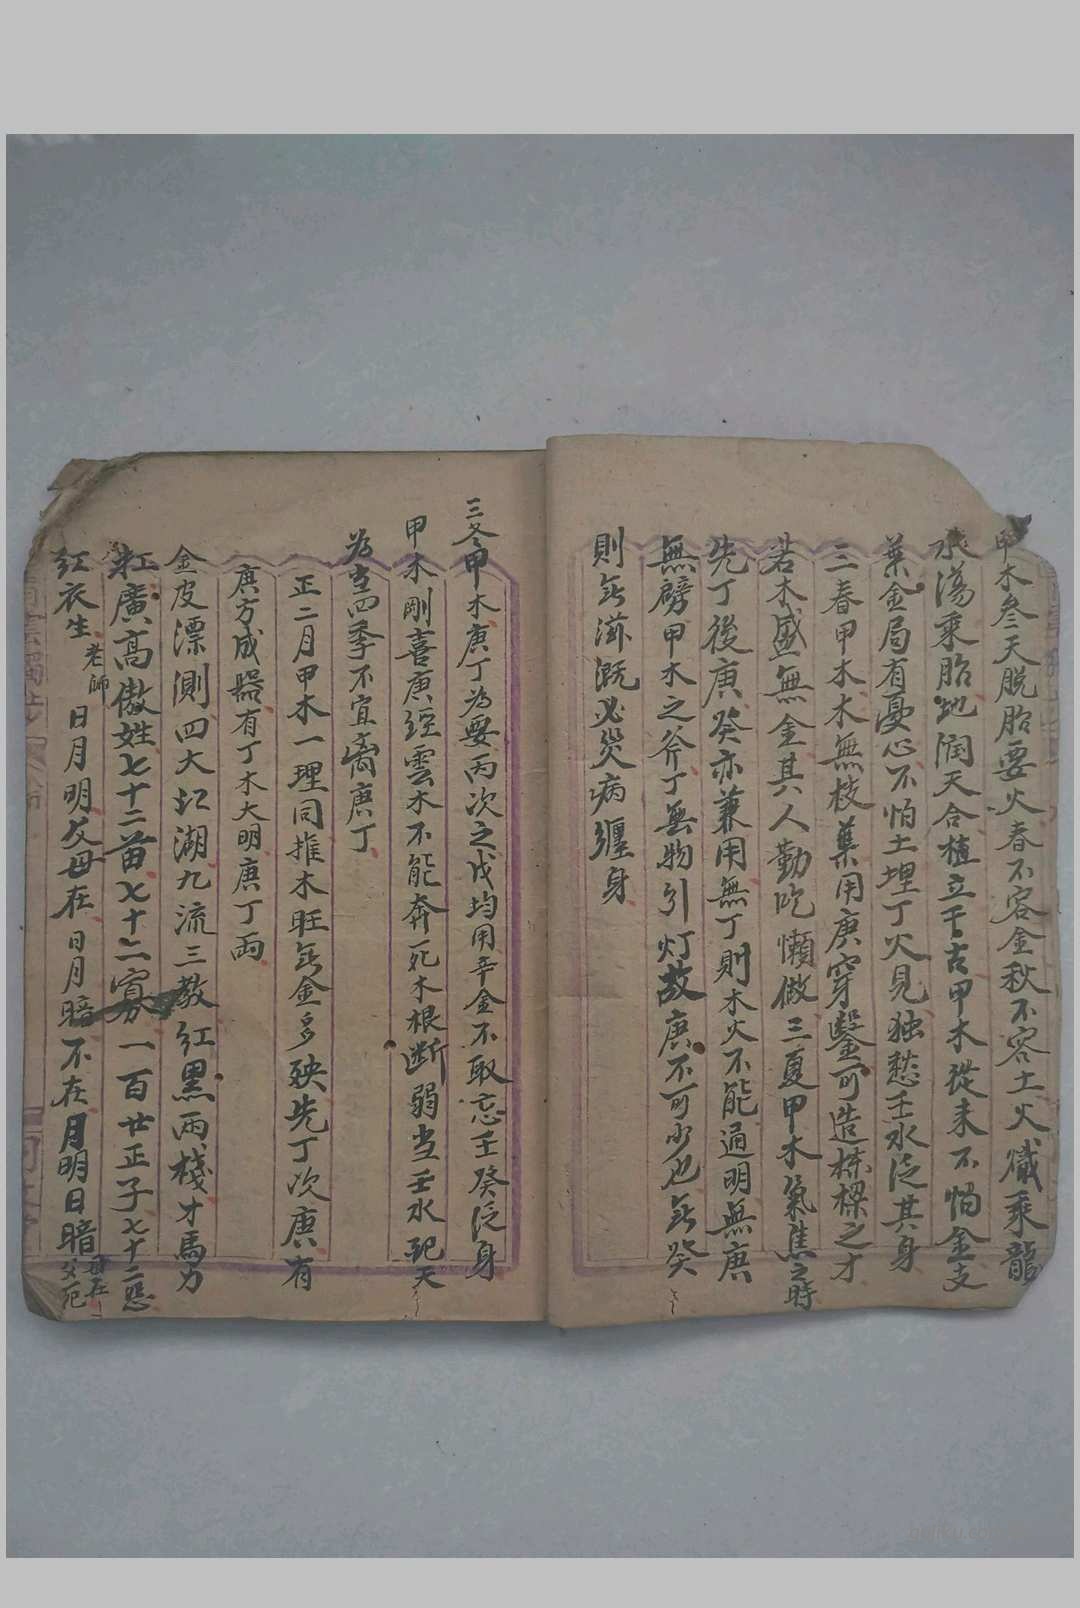 甲木叁天脱胎要火春不容金秋不容土火熾乘龍
水蕩乘胎地润天合植立千古甲木從来不怕金支
葉金局有憂心不怕土埋丁火見独愁壬水泛其身
三春甲木木無枝葉用庚穿鑿可造栋樑之才
若木盛無金其人勤吃懶做三夏甲木氣焦之時
先丁後庚癸亦兼用無丁則木火不能通明無庚
無劈甲木之斧丁無物引灯故庚不可少也无癸
則无滋溉必災病纏身
三冬甲木庚丁為要丙次之戊均用辛金不取忘壬癸泛身
甲木剛喜庚経雲木不能奔死木根断弱当壬水配天
為生四季不宜离庚丁
正二月甲木一理同推木旺无金多殃先丁次庚有
庚方成器有丁木大明庚丁両
金皮漂測四大江湖九流三教紅黑両棧才馬力
紅廣高傲姓七十二苗七十二寡一百廿正子七十二惡
紅衣生老師日月明父母在日月暗不在月明日暗母在父死